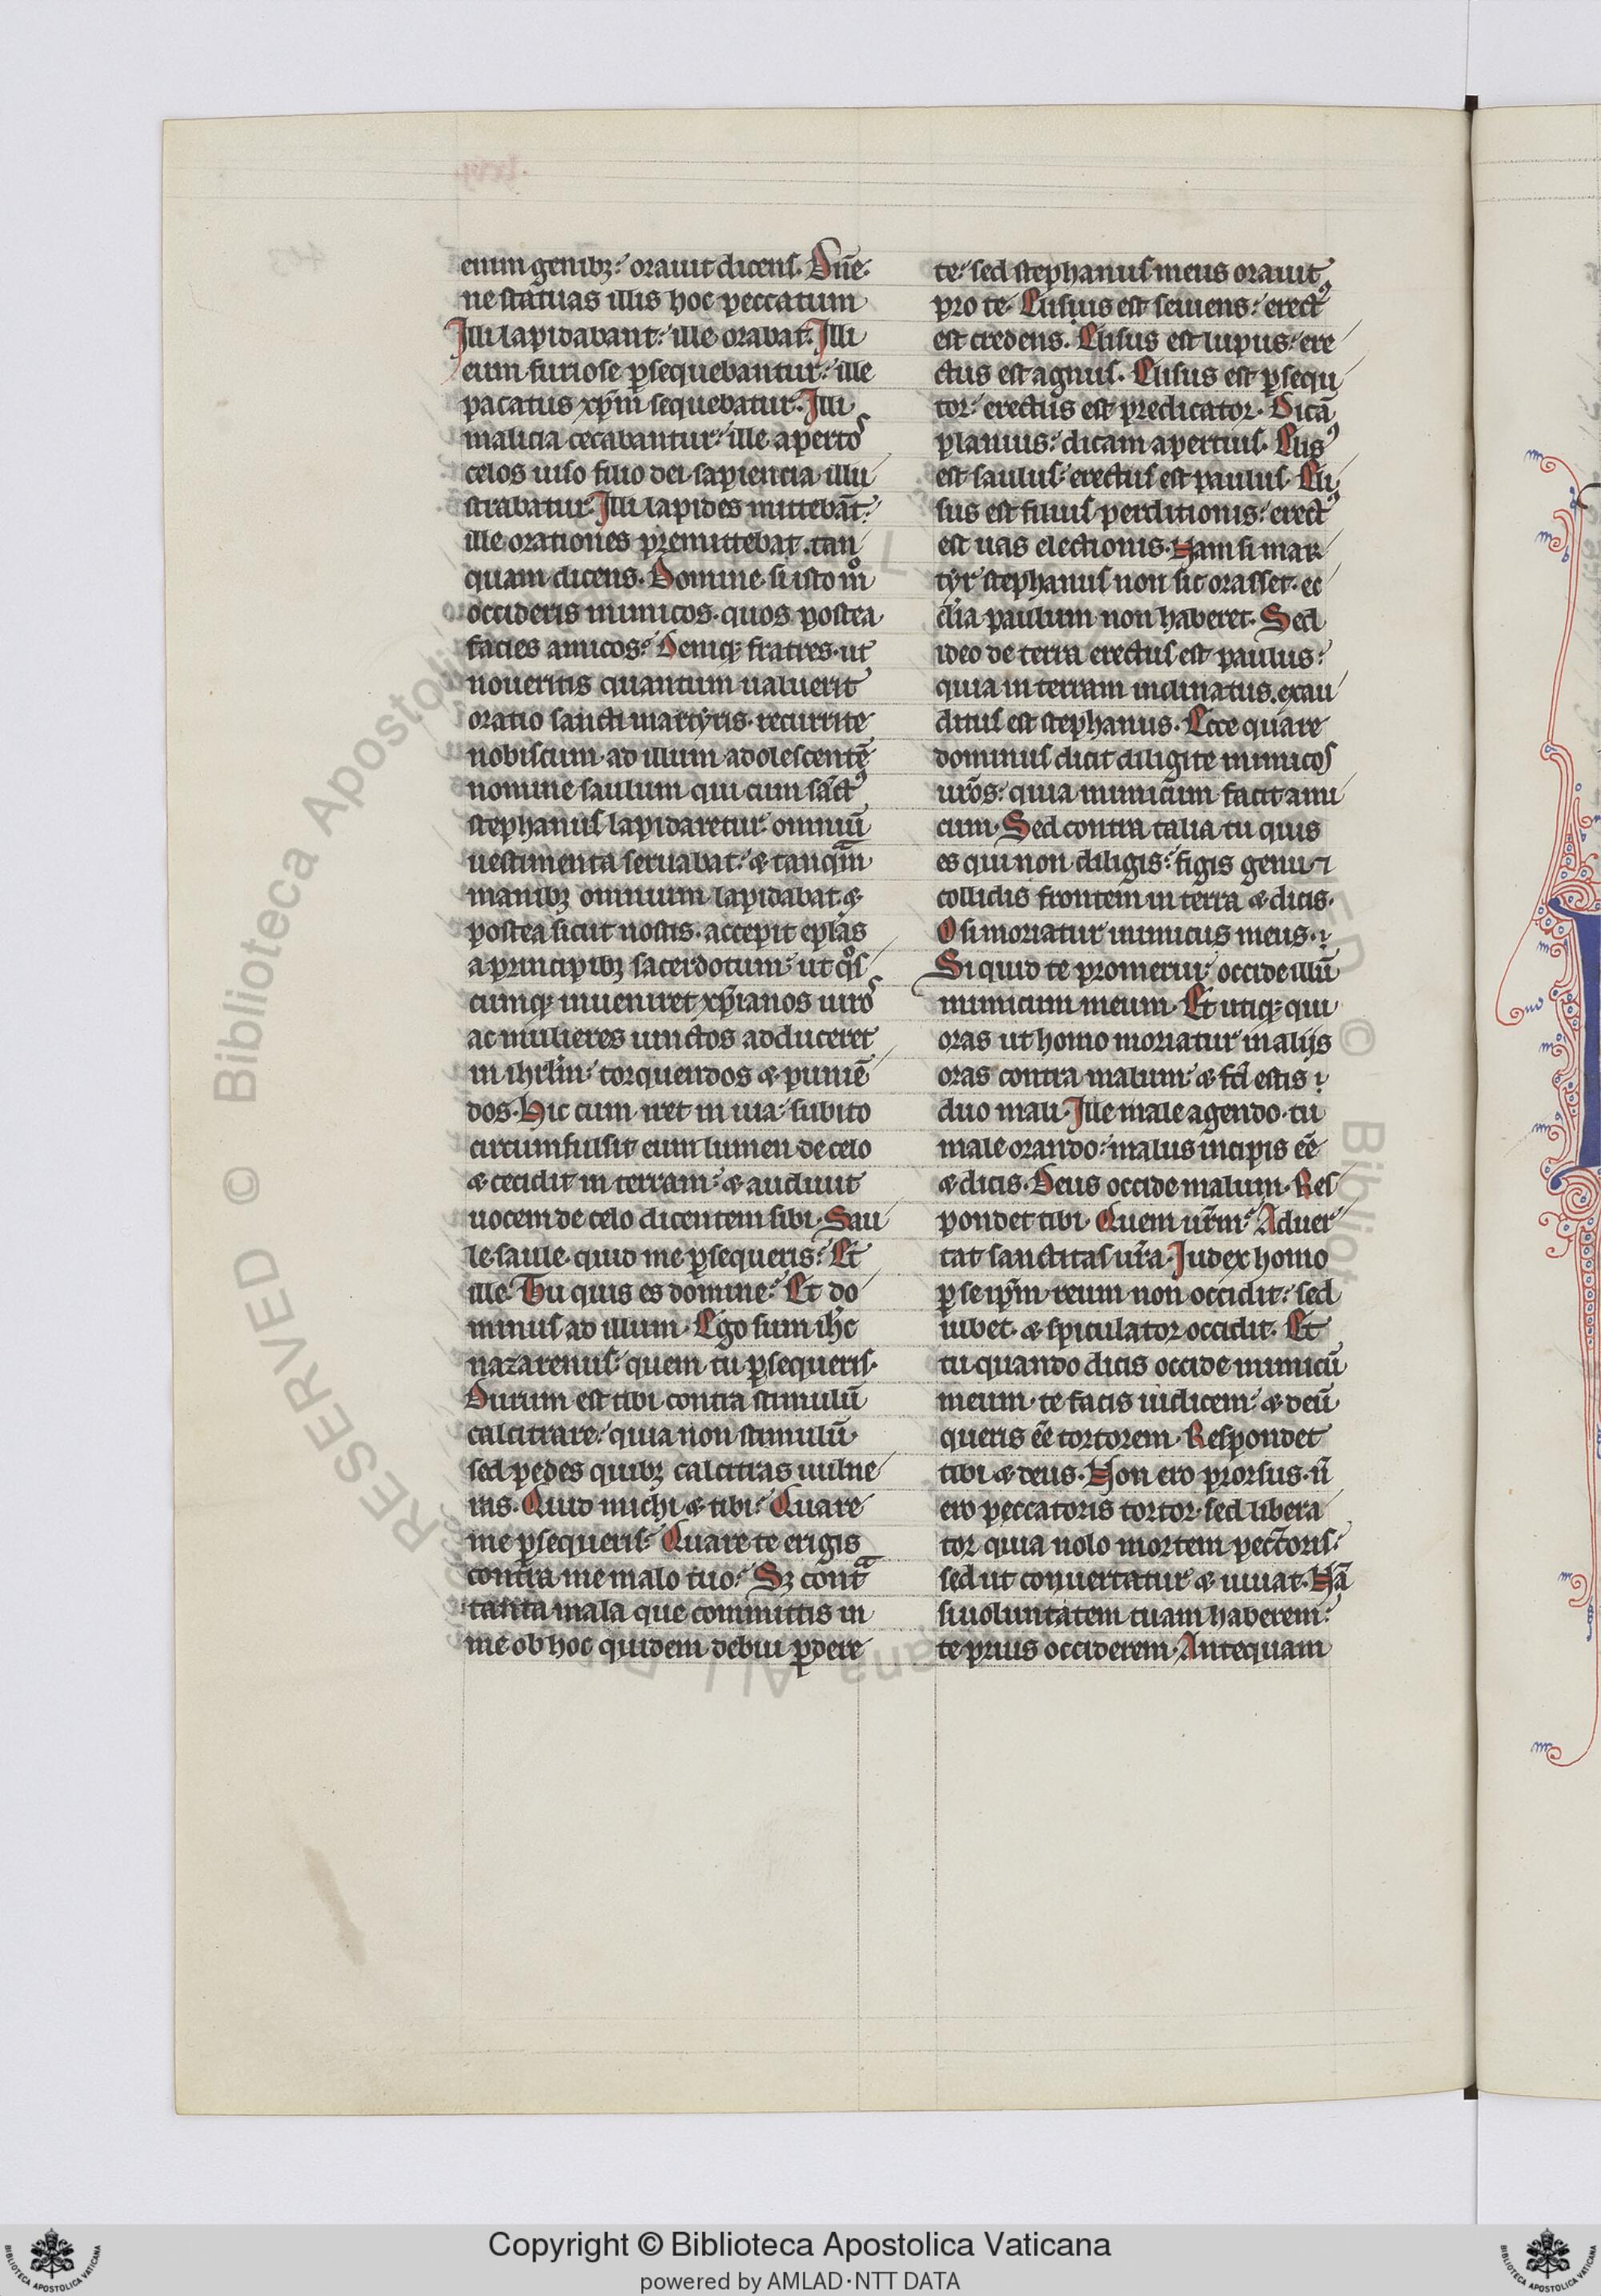 enim genibꝫ: orauit dicens. Dn̄e.
ne statuas illis hoc peccatum
Illi lapidabant: ille orabat. Illi
eum furiose ꝑsequebantur: ille
pacatus xp̄m sequebatur. Illi
malicia cecabantur: ille apertos
celos uiso filio dei sapiencia illu
strabatur. Illi lapides mittebāt:
ille orationes premittebat. tan
quam dicens. Domine si isto mͦ
occideris inimicos. quos postea
facies amicos: Deniqꝫ fratres. ut
noueritis quantum ualuerit
oratio sancti martyris. recurrite
nobiscum ad illum adolescentē
nomine saulum qui cum sāctꝰ
stephanus lapidaretur omniū
uestimenta seruabat: & tanqᵃm
manibꝫ omnium lapidabat. &
postea sicut nostis. accepit ep̄las
a principibꝫ sacerdotum: ut qͦs
cumqꝫ inueniret xp̄ianos uiros
ac mulieres uinctos adduceret
in ihrl̄m: torquendos & puniē
dos. Hic cum iret in uia: subito
circumfulsit eum lumen de celo
& cecidit in terram: & audiuit
uocem de celo dicentem sibi. Sau
le saule. quid me ꝑsequeris: Et
ille. Tu quis es domine: Et do
minus ad illum. Ego sum ih̄c
nazarenus quem tu ꝑsequeris.
Durum est tibi contra stimulū
calcitrare: quia non stimulū
sed pedes quibꝫ calcitras uulne
ras. Quid michi & tibi: Quare
me ꝑsequeris: Quare te erigis
contra me malo tuo: Sꝫ contᵃ
tanta mala que committis in
me ob hoc quidem debui ꝑdere
te: sed stephanus meus orauit
pro te. Elisus est seuiens: erectꝰ
est credens. Elisus est lupus: ere
ctus est agnus. Elisus est ꝑsequ
tor: erectus est predicator. Dicā
planius: dicam apertius. Elisꝰ
est saulus: erectus est paulus. Eli
sus est filius perditionis: erectꝰ
est uas electionis. Nam si mar
tyr stephanus non sic orasset. ec
cl̄ia paulum non haberet. Sed
ideo de terra erectus est paulus:
quia in terram inclinatus. exau
ditus est stephanus. Ecce quare
dominus dicit diligite inimicos
ur̄os: quia inimicum facit ami
cum. Sed contra talia tu quis
es qui non diligis: figis genu ⁊
collidis frontem in terra & dicis.
O si moriatur inimicus meus.
Si quid te promerui: occide illū
inimicum meum. Et utiqꝫ qui
oras ut homo moriatur malijs
oras contra malum: & fc̄i estis
duo mali. Ille male agendo. tu
male orando: malus incipis eē
& dicis. Deus occide malum. Res
pondet tibi. Quem ur̄m: Aduer
tat sanctitas ur̄a. Iudex homo
ꝑ se ip̄m reum non occidit: sed
iubet. & spiculator occidit. Et
tu quando dicis occide inimicū
meum. te facis iudicem: & deū
queris eē tortorem. Respondet
tibi & deus. Non ero prorsus. n̄
ero peccatoris tortor. sed libera
tor quia nolo mortem pecc̄toris:
sed ut conuertatur & uiuat. Nā
si uoluntatem tuam haberem:
te prius occiderem. Antequam
RESERVED © Biblioteca Apostoli
Copyright © Biblioteca Apostolica Vaticana
powered by AMLAD·NTT DATA